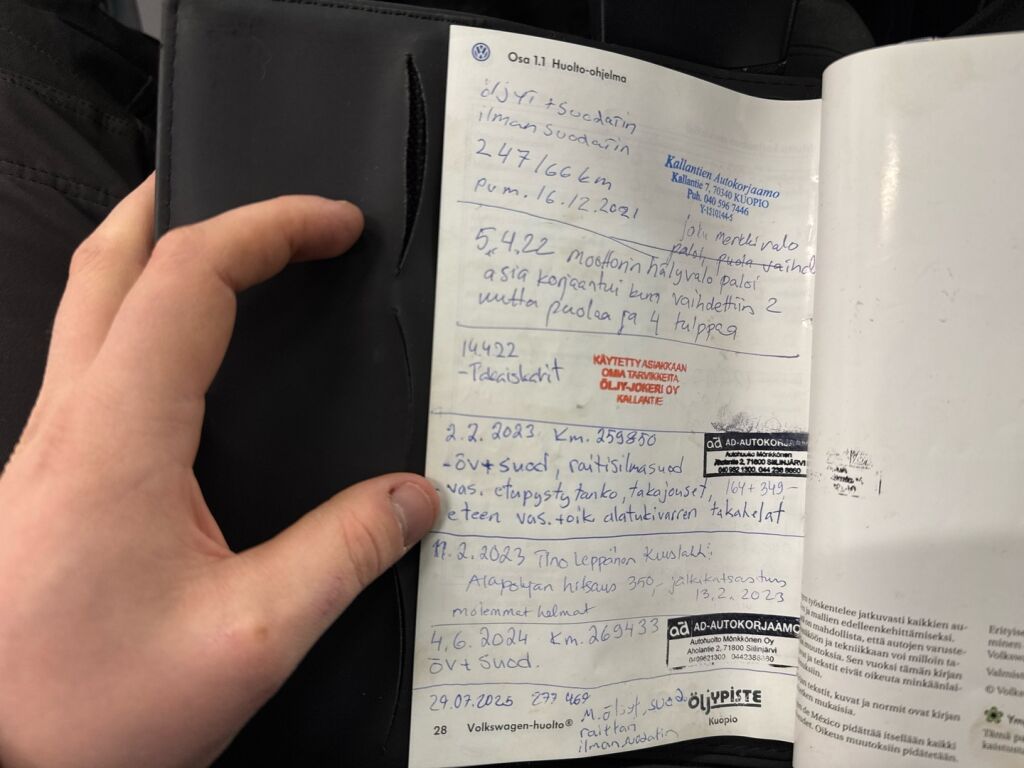 Osa 1.1 Huolto-ohjelma
öljyt + suodatin
ilman suodatin
247166 km
pvm. 16.12.2021
Kallantien Autokorjaamo
Kallantie 7, 70340 KUOPIO
Puh. 040 596 7446
Y-1510144-5
joku merkkivalo
paloi, puola vaihd
5.4.22 moottorin hälyvalo paloi
asia korjaantui kun vaihdettiin 2
uutta puolaa ja 4 tulppaa
14.4.22
-Takaiskarit
KÄYTETTY ASIAKKAAN
OMIA TARVIKKEITA
ÖLJY-JOKERI OY
KALLANTIE
2.2.2023 Km. 259850
ad AD-AUTOKORJAAM
Autohuolto Mönkkönen
Aholantie 2, 71800 SIILINJÄRVI
040 962 1300, 044 238 8860
-öv + suod, raitisilmasuod
-vas. etupystytanko, takajouset, 164 + 349-
eteen vas.+oik. alatukivarren takahelat
11.2.2023 Tino Leppänen Kuuslahti
Alapohjan hitsaus 350,- jälkikatsastus
13.2.2023
molemmat helmat
4.6.2024 Km. 269433
öv + suod.
ad AD-AUTOKORJAAMO
Autohuolto Mönkkönen Oy
Aholantie 2, 71800 Siilinjärvi
0409621300 0442388860
29.07.2025 277 469
M.öljyt, suod.
raittiin
ilmansuodatin
ÖLJYPISTE
Kuopio
28 Volkswagen-huolto®
työskentelee jatkuvasti kaikkien au-
ja mallien edelleenkehittämiseksi.
on mahdollista, että autojen varuste-
ja tekniikkaan voi milloin ta-
muutoksia. Sen vuoksi tämän kirjan
ja tekstit eivät oikeuta minkäänlai-
tekstit, kuvat ja normit ovat kirjan
mukaisia.
de México pidättää itsellään kaikki
Oikeus muutoksiin pidätetään.
Erityise
minen
Volksw
Valmist
© Volks
Ym
Tämä pa